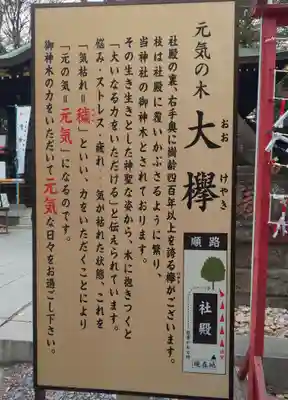 元気の木
大欅
おお けやき
社殿の裏、右手奥に樹齢四百年以上を誇る欅がございます。
枝は社殿に覆いかぶさるように繁り、
当神社の御神木とされております。
その生き生きとした神聖な姿から、木に抱きつくと
「大いなる力をいただける」と伝えられています。
悩み・ストレス・疲れ…気が枯れた状態、これを
「気枯れ＝穢」といい、力をいただくことにより
「元の気＝元気」になるのです。
御神木の力をいただいて元気な日々をお過ごし下さい。
順路
社殿
現在地